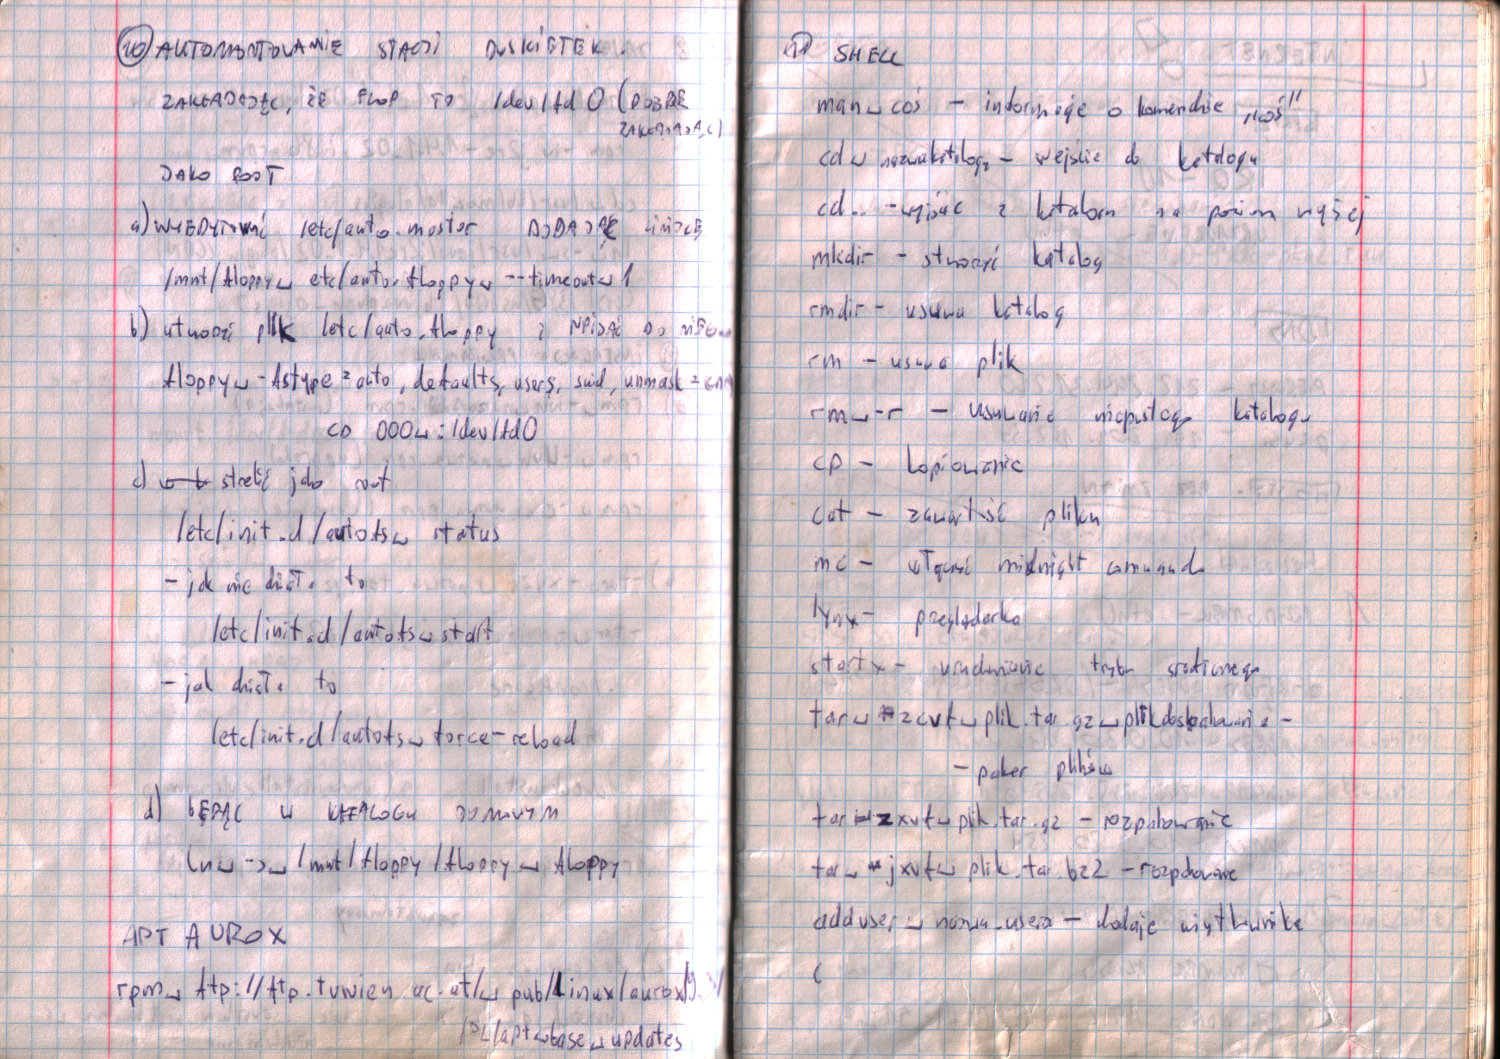 10 AUTOMONTOWANIE STACJI DYSKIETEK.
ZAKŁADAJĄC, ŻE FLOP TO /dev/fd0 (DOBRZE
ZAKŁADAJĄC)
JAKO ROOT
a) WYEDYTOWAĆ /etc/auto.master DODAJĄC LINIJKĘ
/mnt/floppy␣ etc/auto.floppy␣ --timeout␣1
b) utworzć plik /etc/auto.floppy i WPISAĆ DO NIEGO
floppy␣ -fstype=auto, defaults, users, suid, unmask=
CD 000␣:/dev/fd0
c) jako root
/etc/init.d/autofs␣ status
- jak nie działa to
/etc/init.d/autofs␣start
- jak działa to
/etc/init.d/autofs␣ force-reload
d) BĘDĄC W KATALOGU DOMOWYM
ln␣ -s␣ /mnt/floppy/floppy␣ floppy
APT AUROX
rpm␣ ftp://ftp.tuwien.ac.at/␣ pub/Linux/aurox/9.
/apt␣base␣updates
11 SHELL
man␣coś - informacje o komendzie "coś"
cd␣ nazwakatalogu - wejście do katalogu
cd.. - wyjść z katalogu na poziom wyżej
mkdir - stworzyć katalog
rmdir - usuwa katalog
rm - usuwa plik
rm␣-r - usuwanie niepustego katalogu
cp - kopiowanie
cat - zawartość pliku
mc - włączyć midnight commande
lynx - przeglądarka
startx - uruchamianie trybu graficznego
tar␣ zcvf␣plik.tar.gz␣plikdospakowania -
- paker plików
tar zxvf␣plik.tar.gz - rozpakowanie
tar␣ jxvf␣ plik.tar.bz2 - rozpakowanie
adduser␣ nazwa_usera - dodaje użytkownika
(